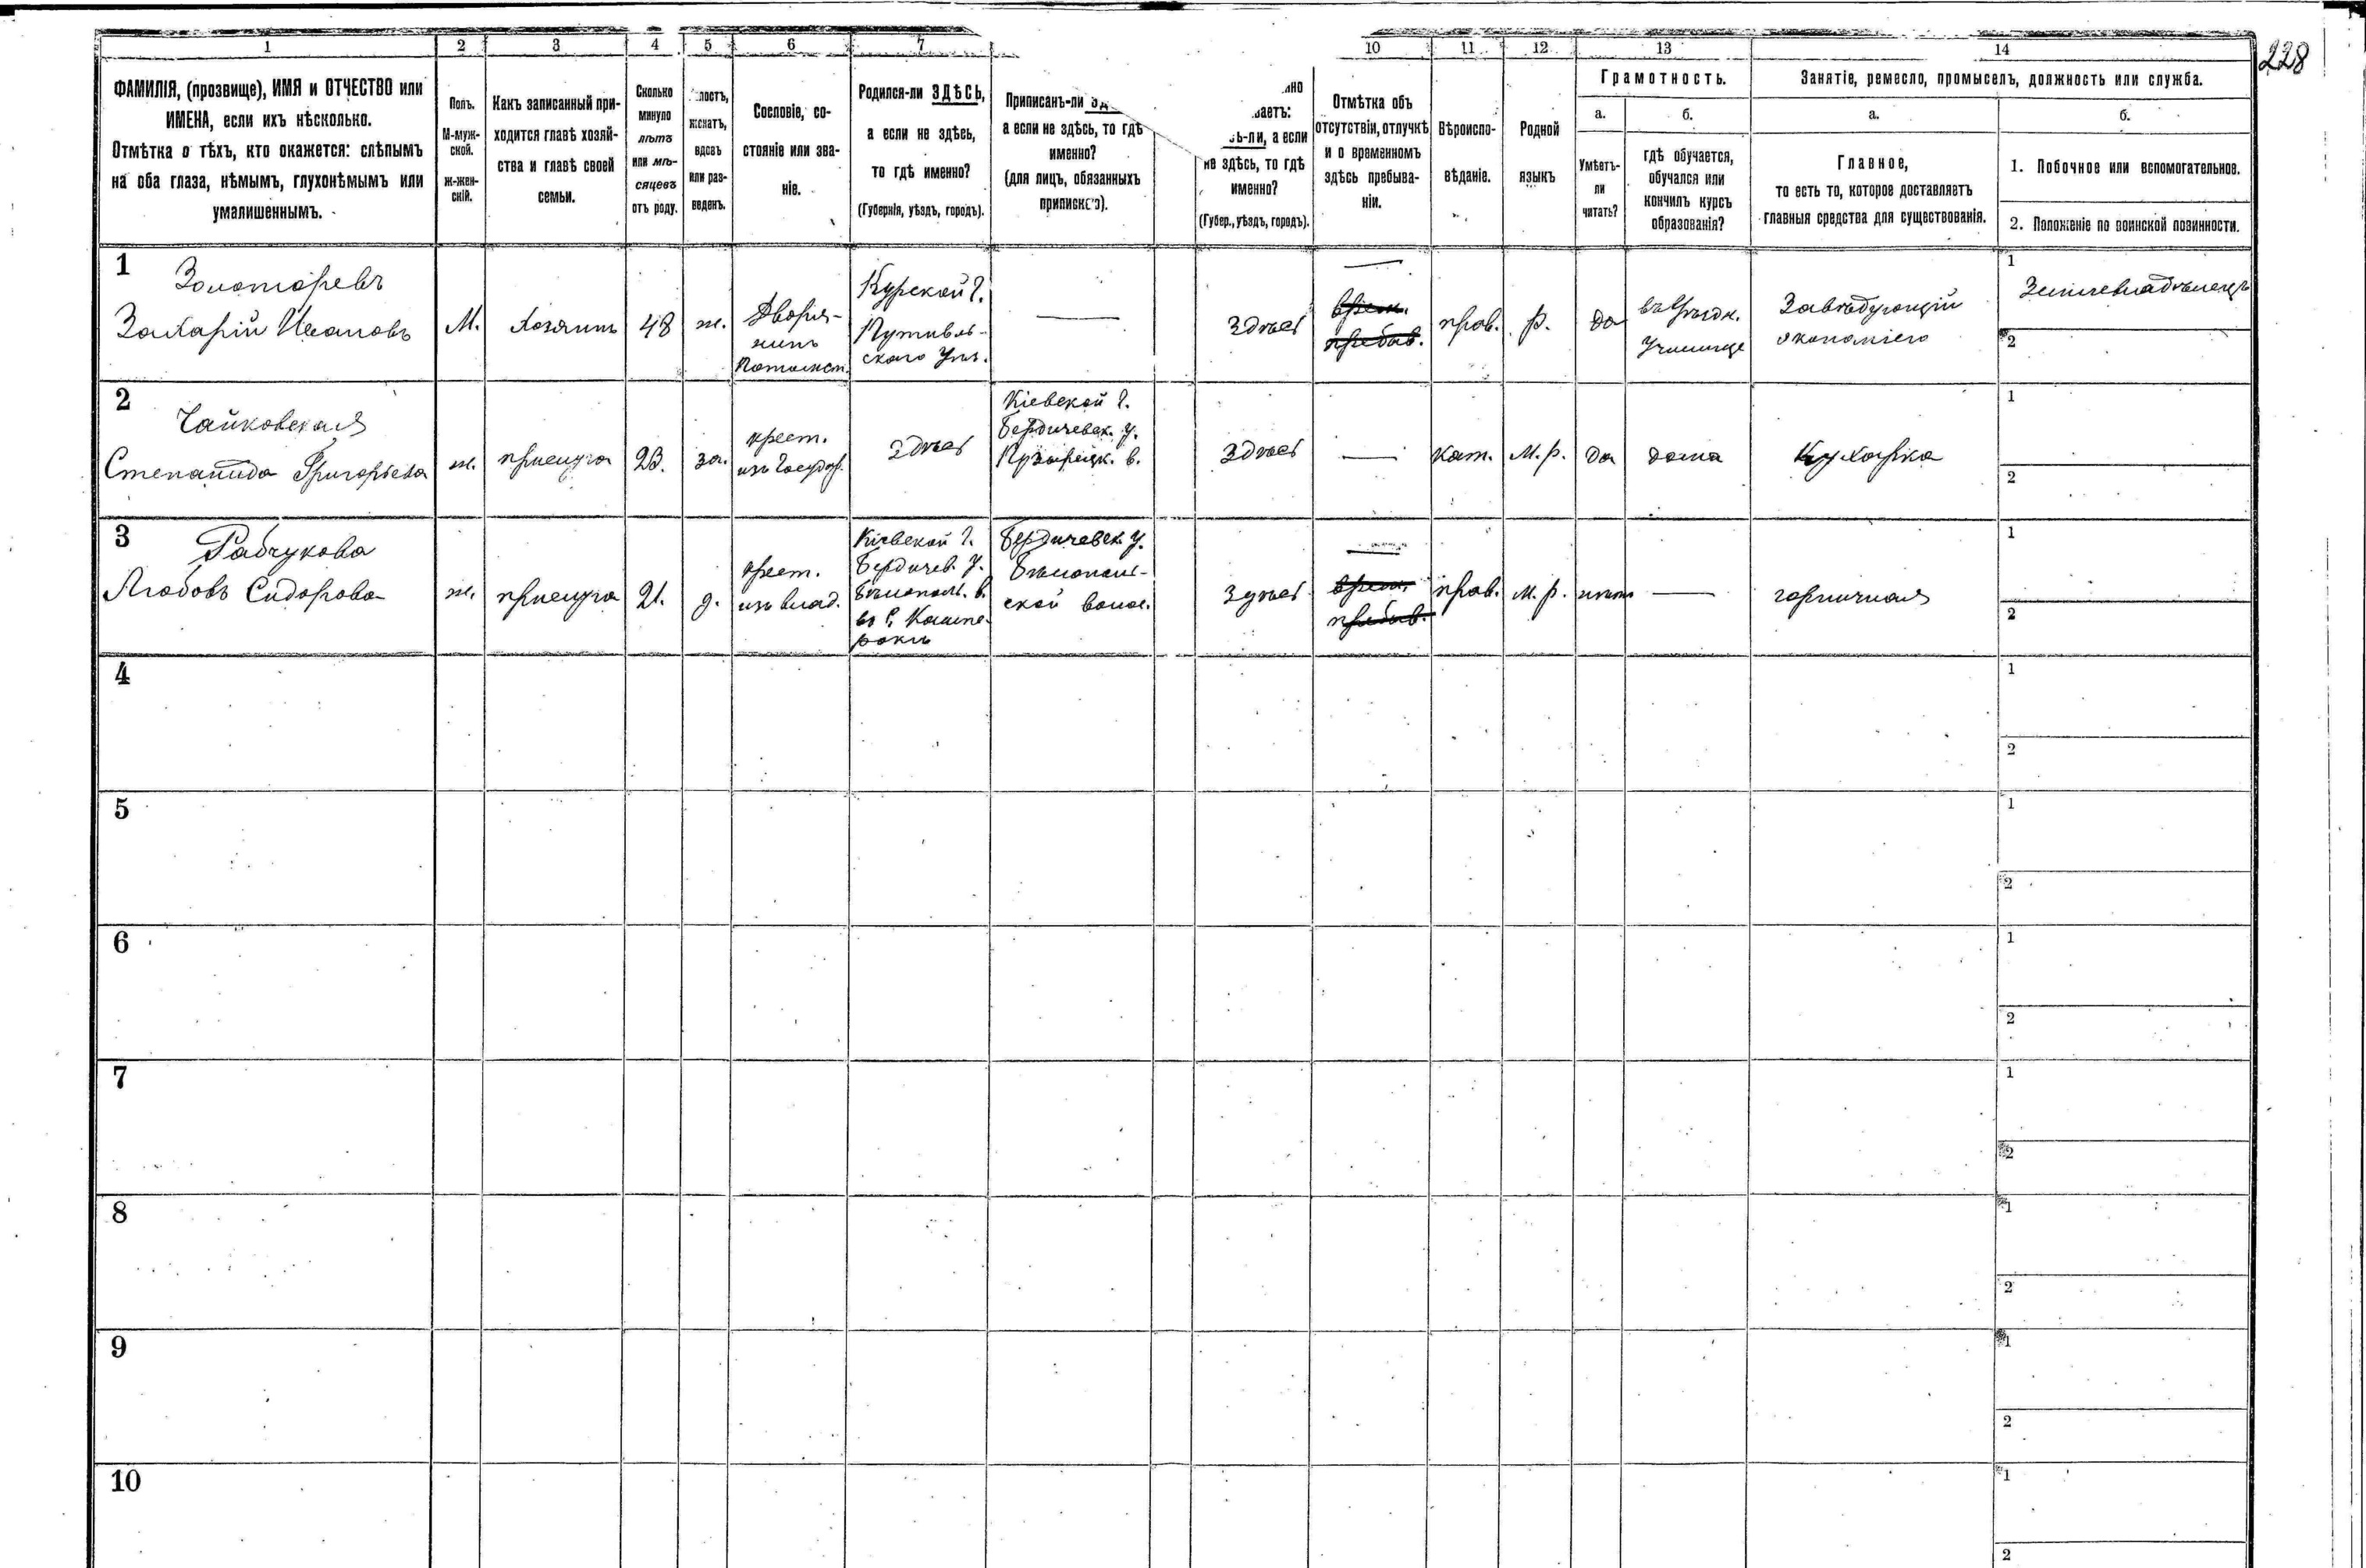 228
1 2 3 4 5 6 7 10 11 12 13 14
ФАМИЛІЯ, (прозвище), ИМЯ и ОТЧЕСТВО или
ИМЕНА, если ихъ нѣсколько.
Отмѣтка о тѣхъ, кто окажется: слѣпымъ
на оба глаза, нѣмымъ, глухонѣмымъ или
умалишеннымъ.
Полъ.
М-муж-
ской.
ж-жен-
скій.
Какъ записанный при-
ходится главѣ хозяй-
ства и главѣ своей
семьи.
Сколько
минуло
лѣтъ
или мѣ-
сяцевъ
отъ роду.
лостъ,
женатъ,
вдовъ
или раз-
веденъ.
Сословіе, со-
стояніе или зва-
ніе.
Родился-ли ЗДѢСЬ,
а если не здѣсь,
то гдѣ именно?
(Губернія, уѣздъ, городъ).
Приписанъ-ли
а если не здѣсь, то гдѣ
именно?
(для лицъ, обязанныхъ
припискою).
ваетъ:
ь-ли, а если
не здѣсь, то гдѣ
именно?
(Губер., уѣздъ, городъ).
Отмѣтка объ
отсутствіи, отлучкѣ
и о временномъ
здѣсь пребыва-
ніи.
Вѣроиспо-
вѣданіе.
Родной
языкъ
Грамотность.
а.
Умѣетъ-
ли
читать?
б.
гдѣ обучается,
обучался или
кончилъ курсъ
образованія?
Занятіе, ремесло, промыселъ, должность или служба.
а.
Главное,
то есть то, которое доставляетъ
главныя средства для существованія.
б.
1. Побочное или вспомогательное.
2. Положеніе по воинской повинности.
1
Золоторевъ
Захарій Ивановъ
М.
Хозяинъ
48
ж.
Дворя-
нинъ
Потомст.
Курской Г.
Путивль-
скаго Уѣз.
—
Здѣсь
врем.
пребыв.
прав.
Р.
да
въ Уѣздн.
Училище
Завѣдующій
экономіею
1
Землевладѣлецъ
2
2
Чайковская
Степанида Григорьева
ж.
прислуга
23.
за.
крест.
изъ Госудор.
Здѣсь
Кіевской Г.
Бердичевск. У.
Здѣсь
—
Кат.
М. р.
да
дома
Кухарка
1
2
3
Рабчукова
Любовь Сидорова
ж.
прислуга
21.
д.
крест.
изъ влад.
Кіевской Г.
Бердичев. У.
Бѣлополь. в.
въ С. Кашпе-
ровкѣ
Бердичевск У.
Бѣлополь-
ской волос.
Здѣсь
врем.
пребыв.
прав.
М. р.
нѣтъ
—
горничная
1
2
4
1
2
5
1
2
6
1
2
7
1
2
8
1
2
9
1
2
10
1
2